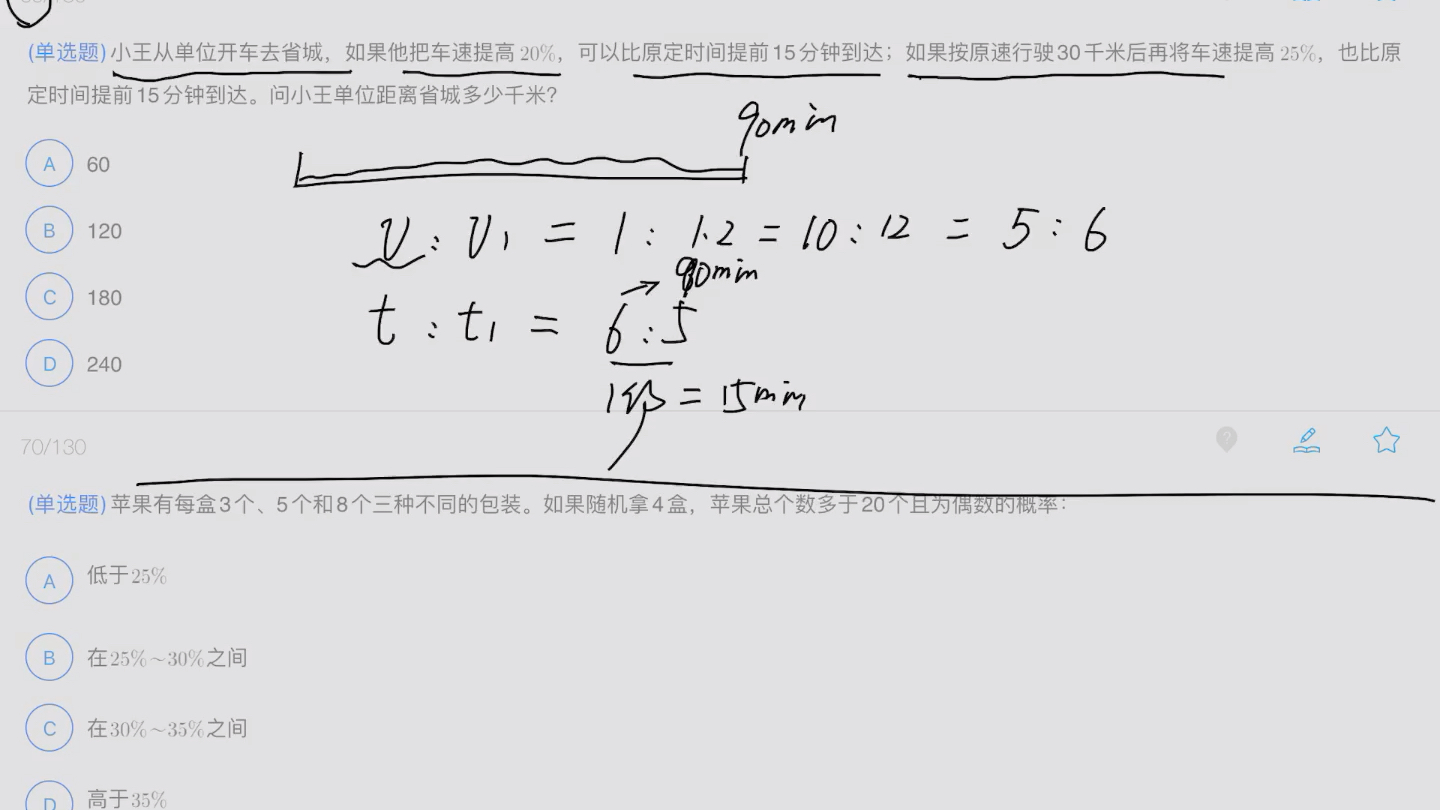 (单选题)小王从单位开车去省城，如果他把车速提高20%，可以比原定时间提前15分钟到达；如果按原速行驶30千米后再将车速提高25%，也比原
定时间提前15分钟到达。问小王单位距离省城多少千米？
90min
A 60
B 120
v : v1 = 1 : 1.2 = 10 : 12 = 5 : 6
90min
C 180
t : t1 = 6 : 5
D 240
1份 = 15min
70/130
(单选题)苹果有每盒3个、5个和8个三种不同的包装。如果随机拿4盒，苹果总个数多于20个且为偶数的概率：
A 低于25%
B 在25%~30%之间
C 在30%~35%之间
D 高于35%